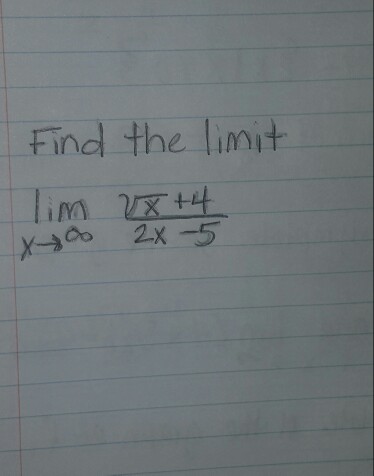 Find the limit
lim √x +4
x→∞ 2x -5